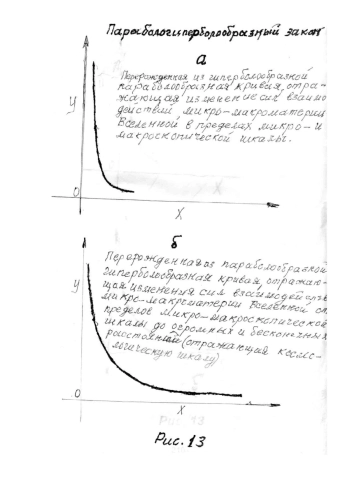 Парабологиперболообразный закон
а
Перерожденная из гиперболообразной
параболобразная кривая, отра-
жающая изменение сил взаимо
действий микро-макроматерии
Вселенной в пределах микро- и
макроскопической шкалы.
У
0
X
б
Перерожденная из параболобразной
гиперболообразная кривая, отражаю-
щая изменения сил взаимодействия
микро-макроматерии Вселенной от
пределов микро-макроскопической
шкалы до огромных и бесконечных
расстояний (отражающий космо-
логическую шкалу)
У
0
X
Рис. 13